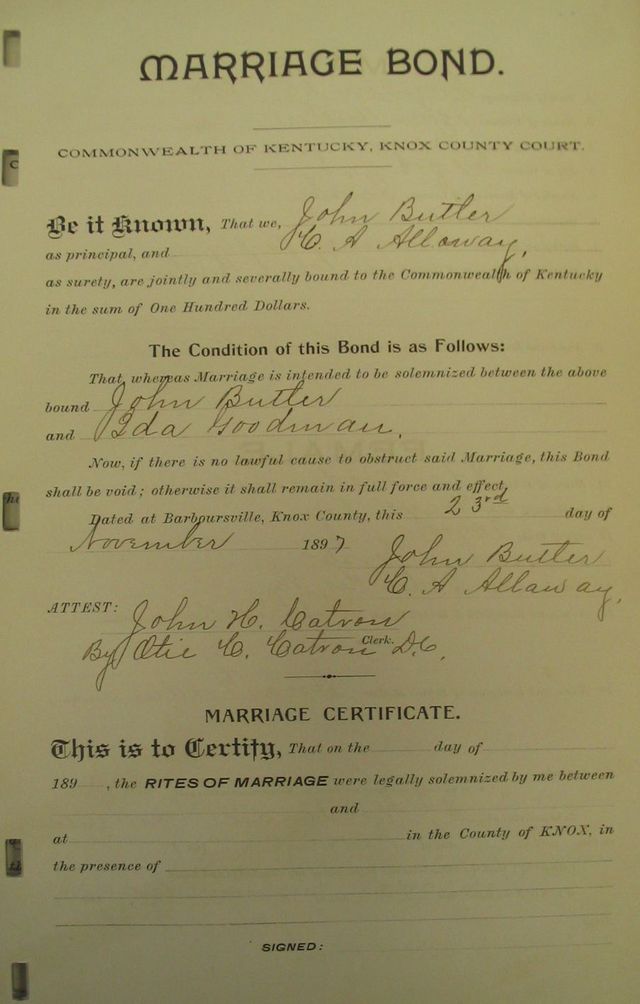 MARRIAGE BOND.
COMMONWEALTH OF KENTUCKY, KNOX COUNTY COURT.
Be it Known, That we, John Butler
as principal, and C. A Alloway,
as surety, are jointly and severally bound to the Commonwealth of Kentucky
in the sum of One Hundred Dollars.
The Condition of this Bond is as Follows:
That, whereas Marriage is intended to be solemnized between the above
bound John Butler
and Ida Goodman,
Now, if there is no lawful cause to obstruct said Marriage, this Bond
shall be void; otherwise it shall remain in full force and effect.
Dated at Barboursville, Knox County, this 23rd day of
November 1897
John Butler
C. A Allaway,
ATTEST: John H. Catron
By Otie C. Catron Clerk. D.C,
MARRIAGE CERTIFICATE.
This is to Certify, That on the day of
189 , the RITES OF MARRIAGE were legally solemnized by me between
and
at in the County of KNOX, in
the presence of
SIGNED: